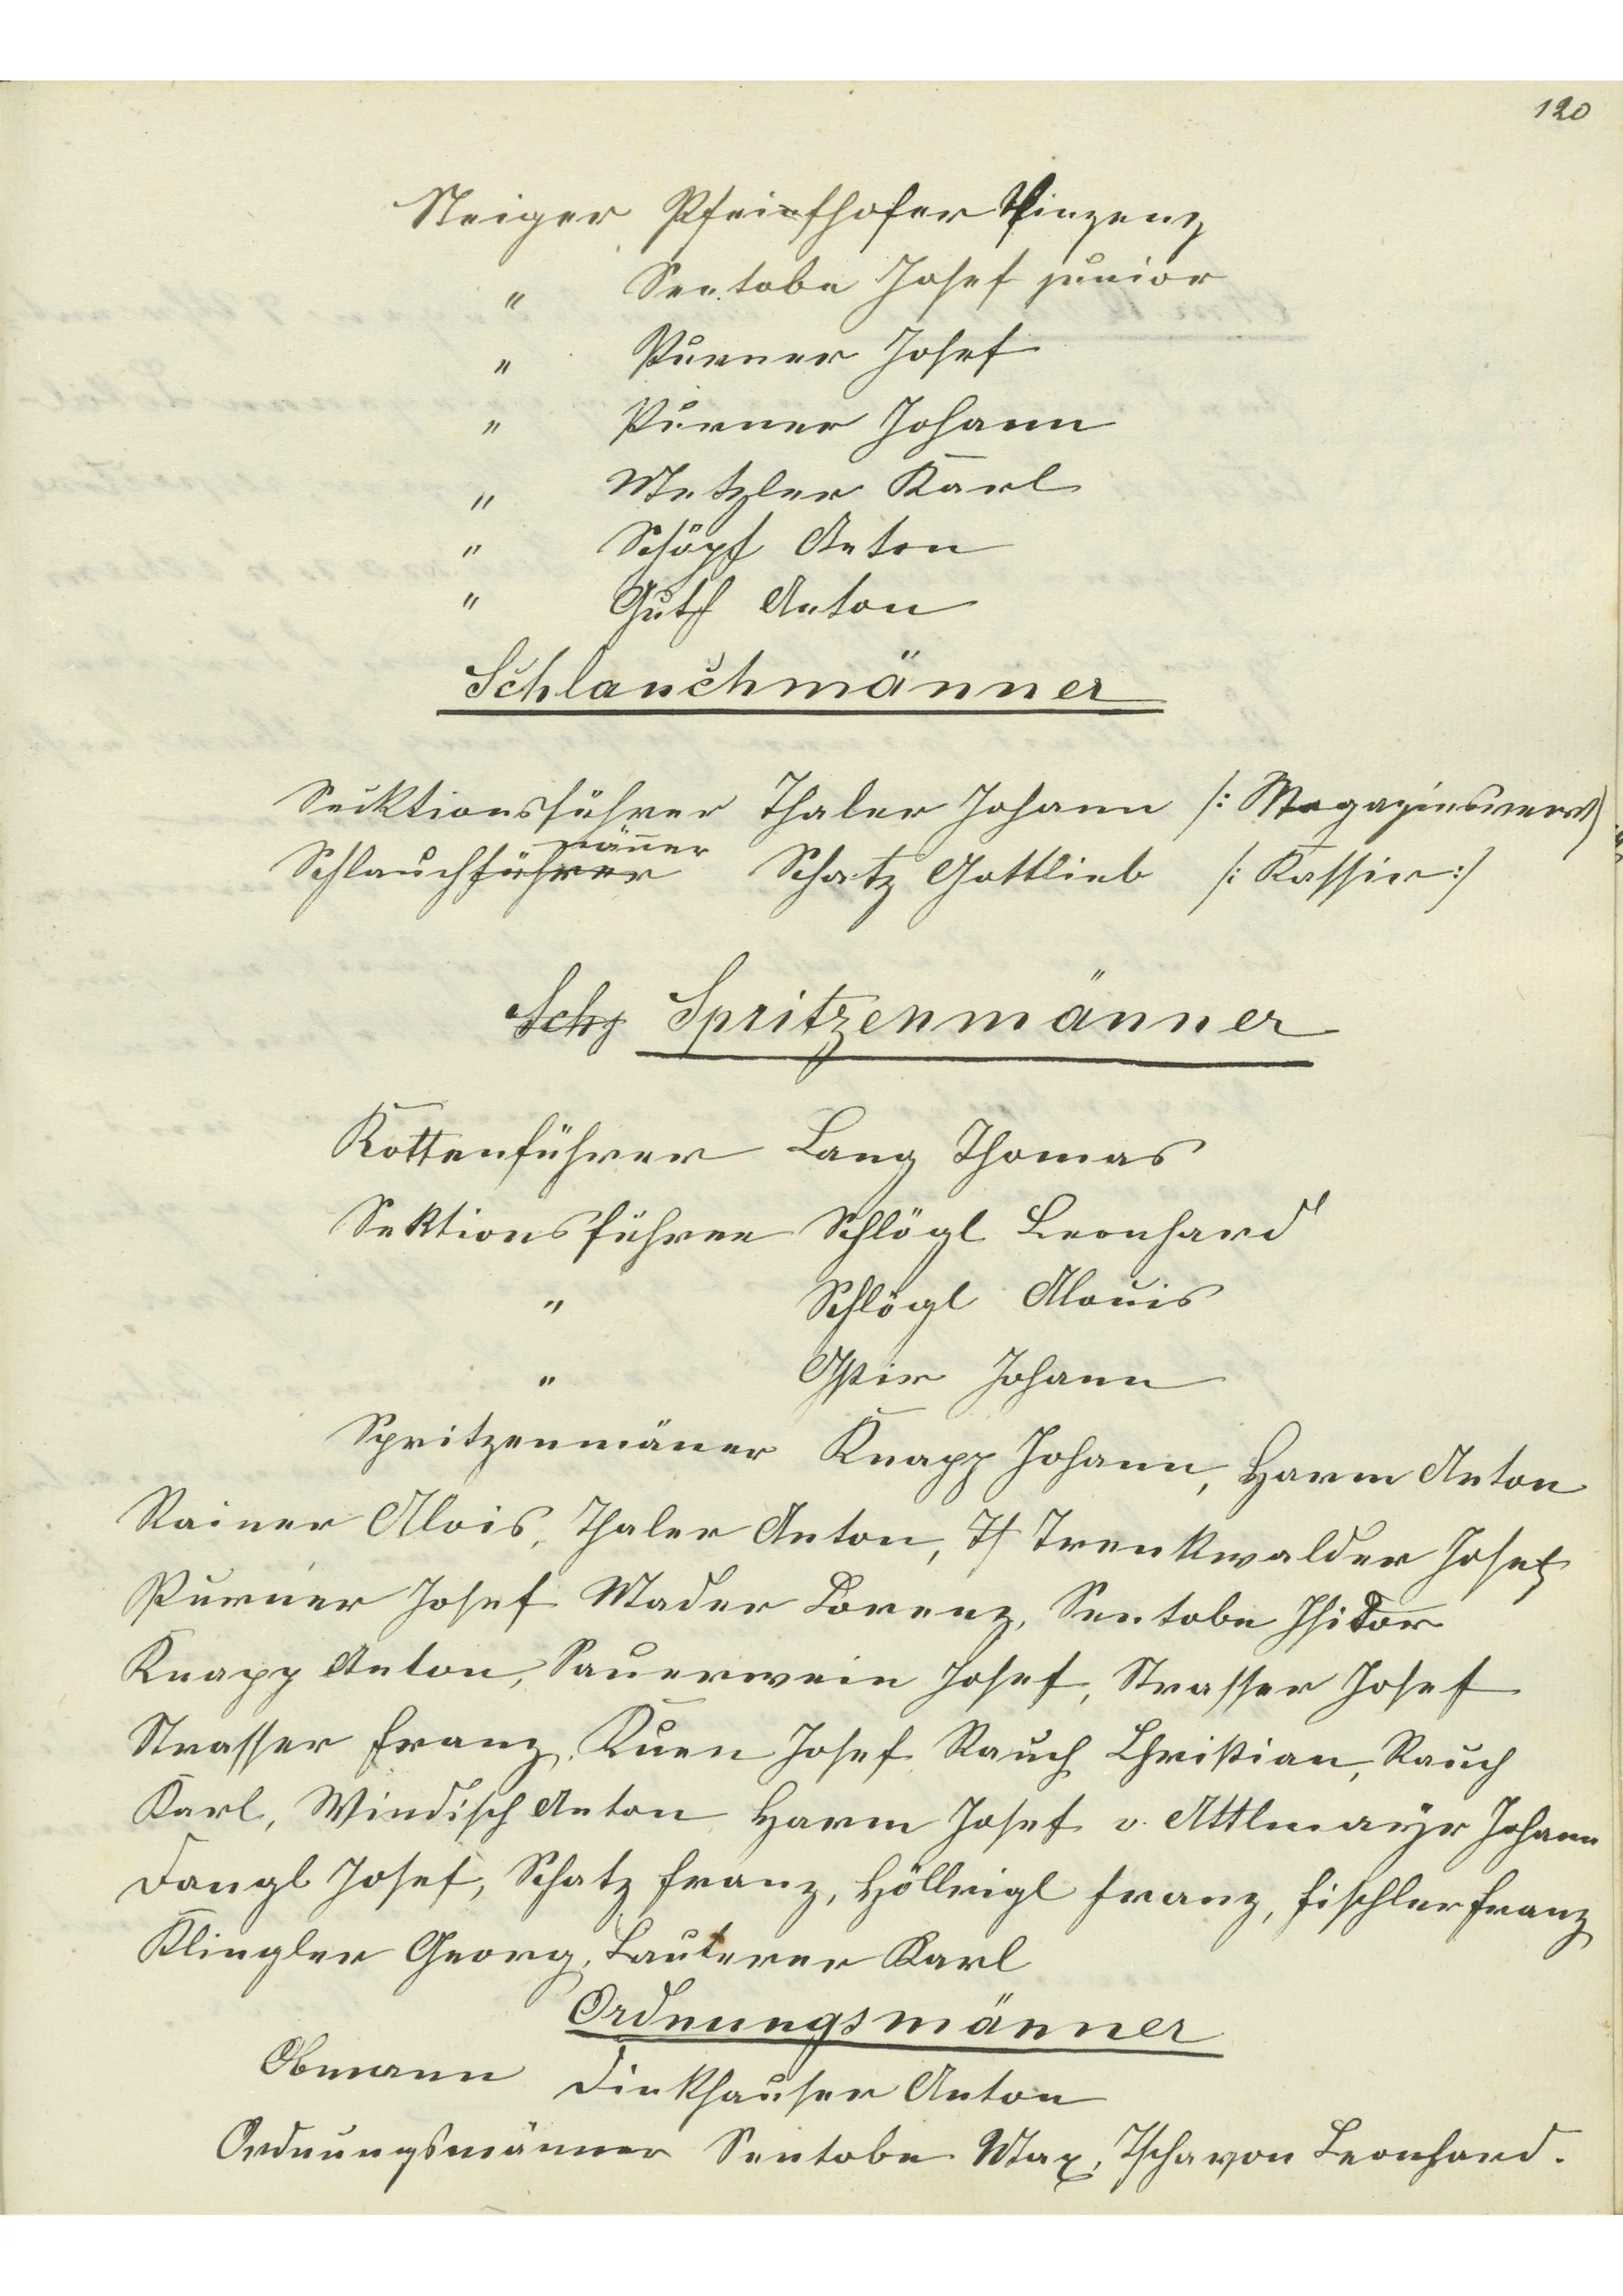 120
Steiger Pfeifhofer Vinzenz
" Sentobe Josef junior
" Purner Josef
" Purner Johann
" Metzler Karl
" Schöpf Anton
" Guth Anton
Schlauchmänner
Secktionsführer Thaler Johann /: Magazinsverw
männer
Schlauchführer Schatz Gottlieb /: Kassier :/
Sch Spritzenmänner
Rottenführer Lang Thomas
Sektionsführer Schlögl Leonhard
" Schlögl Alouis
" Johann
Spritzenmäner Knapp Johann, Harm Anton
Rainer Alois, Thaler Anton, Th Trenkwalder Josef
Purner Josef Mader Lorenz, Sentobe Isidor
Knapp Anton, Sauerwein Josef, Strasser Josef
Strasser Franz, Kuen Josef Rauch Christian, Rauch
Karl, Windisch Anton Harm Josef v. Attlmayr Johann
Dangl Josef, Schatz Franz, Höllrigl Franz, Fischler Franz
Klingler Georg, Lauterer Karl
Ordnungsmänner
Obmann Dinkhauser Anton
Ordnungsmänner Sentobe Max, Tschavon Leonhard.